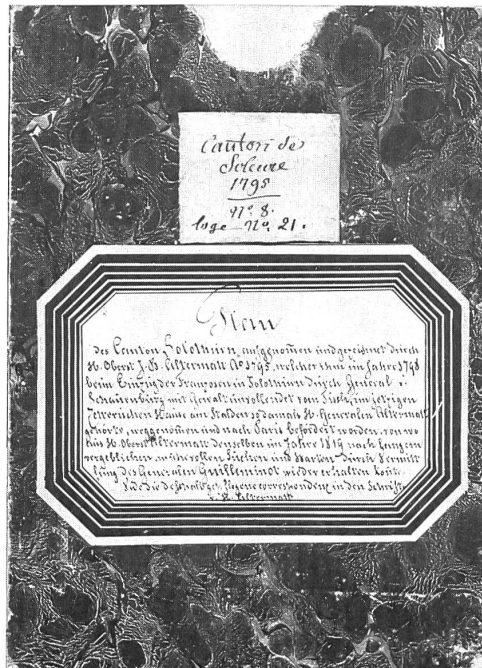 Canton de
Soleure
1795
Nº 8.
loge Nº 21.
Plan
des Canton Solothurn, aufgenom̄en und gezeichnet durch
H. Oberst J. B. Altermatt Aº 1795, welcher ihm im Jahre 1798
beim Einzug der Franzosen in Solothurn durch General v.
Schauenburg mit Gewalt unvollendet vom Tisch im jetzigen
Hause am Stalden so damals H. Generalen Altermatt
gehörte, weggenom̄en und nach Paris befördert worden, von wo
bis H. Oberst Altermatt denselben im Jahre 1819 nach langem
vergeblichen, mühevollen Suchen und Warten durch Vermitt
lung des Generalen Guilleminot wieder erhalten konte.
Vide die deshalb gepflogene correspondenz in den Schriften
v. Altermatt